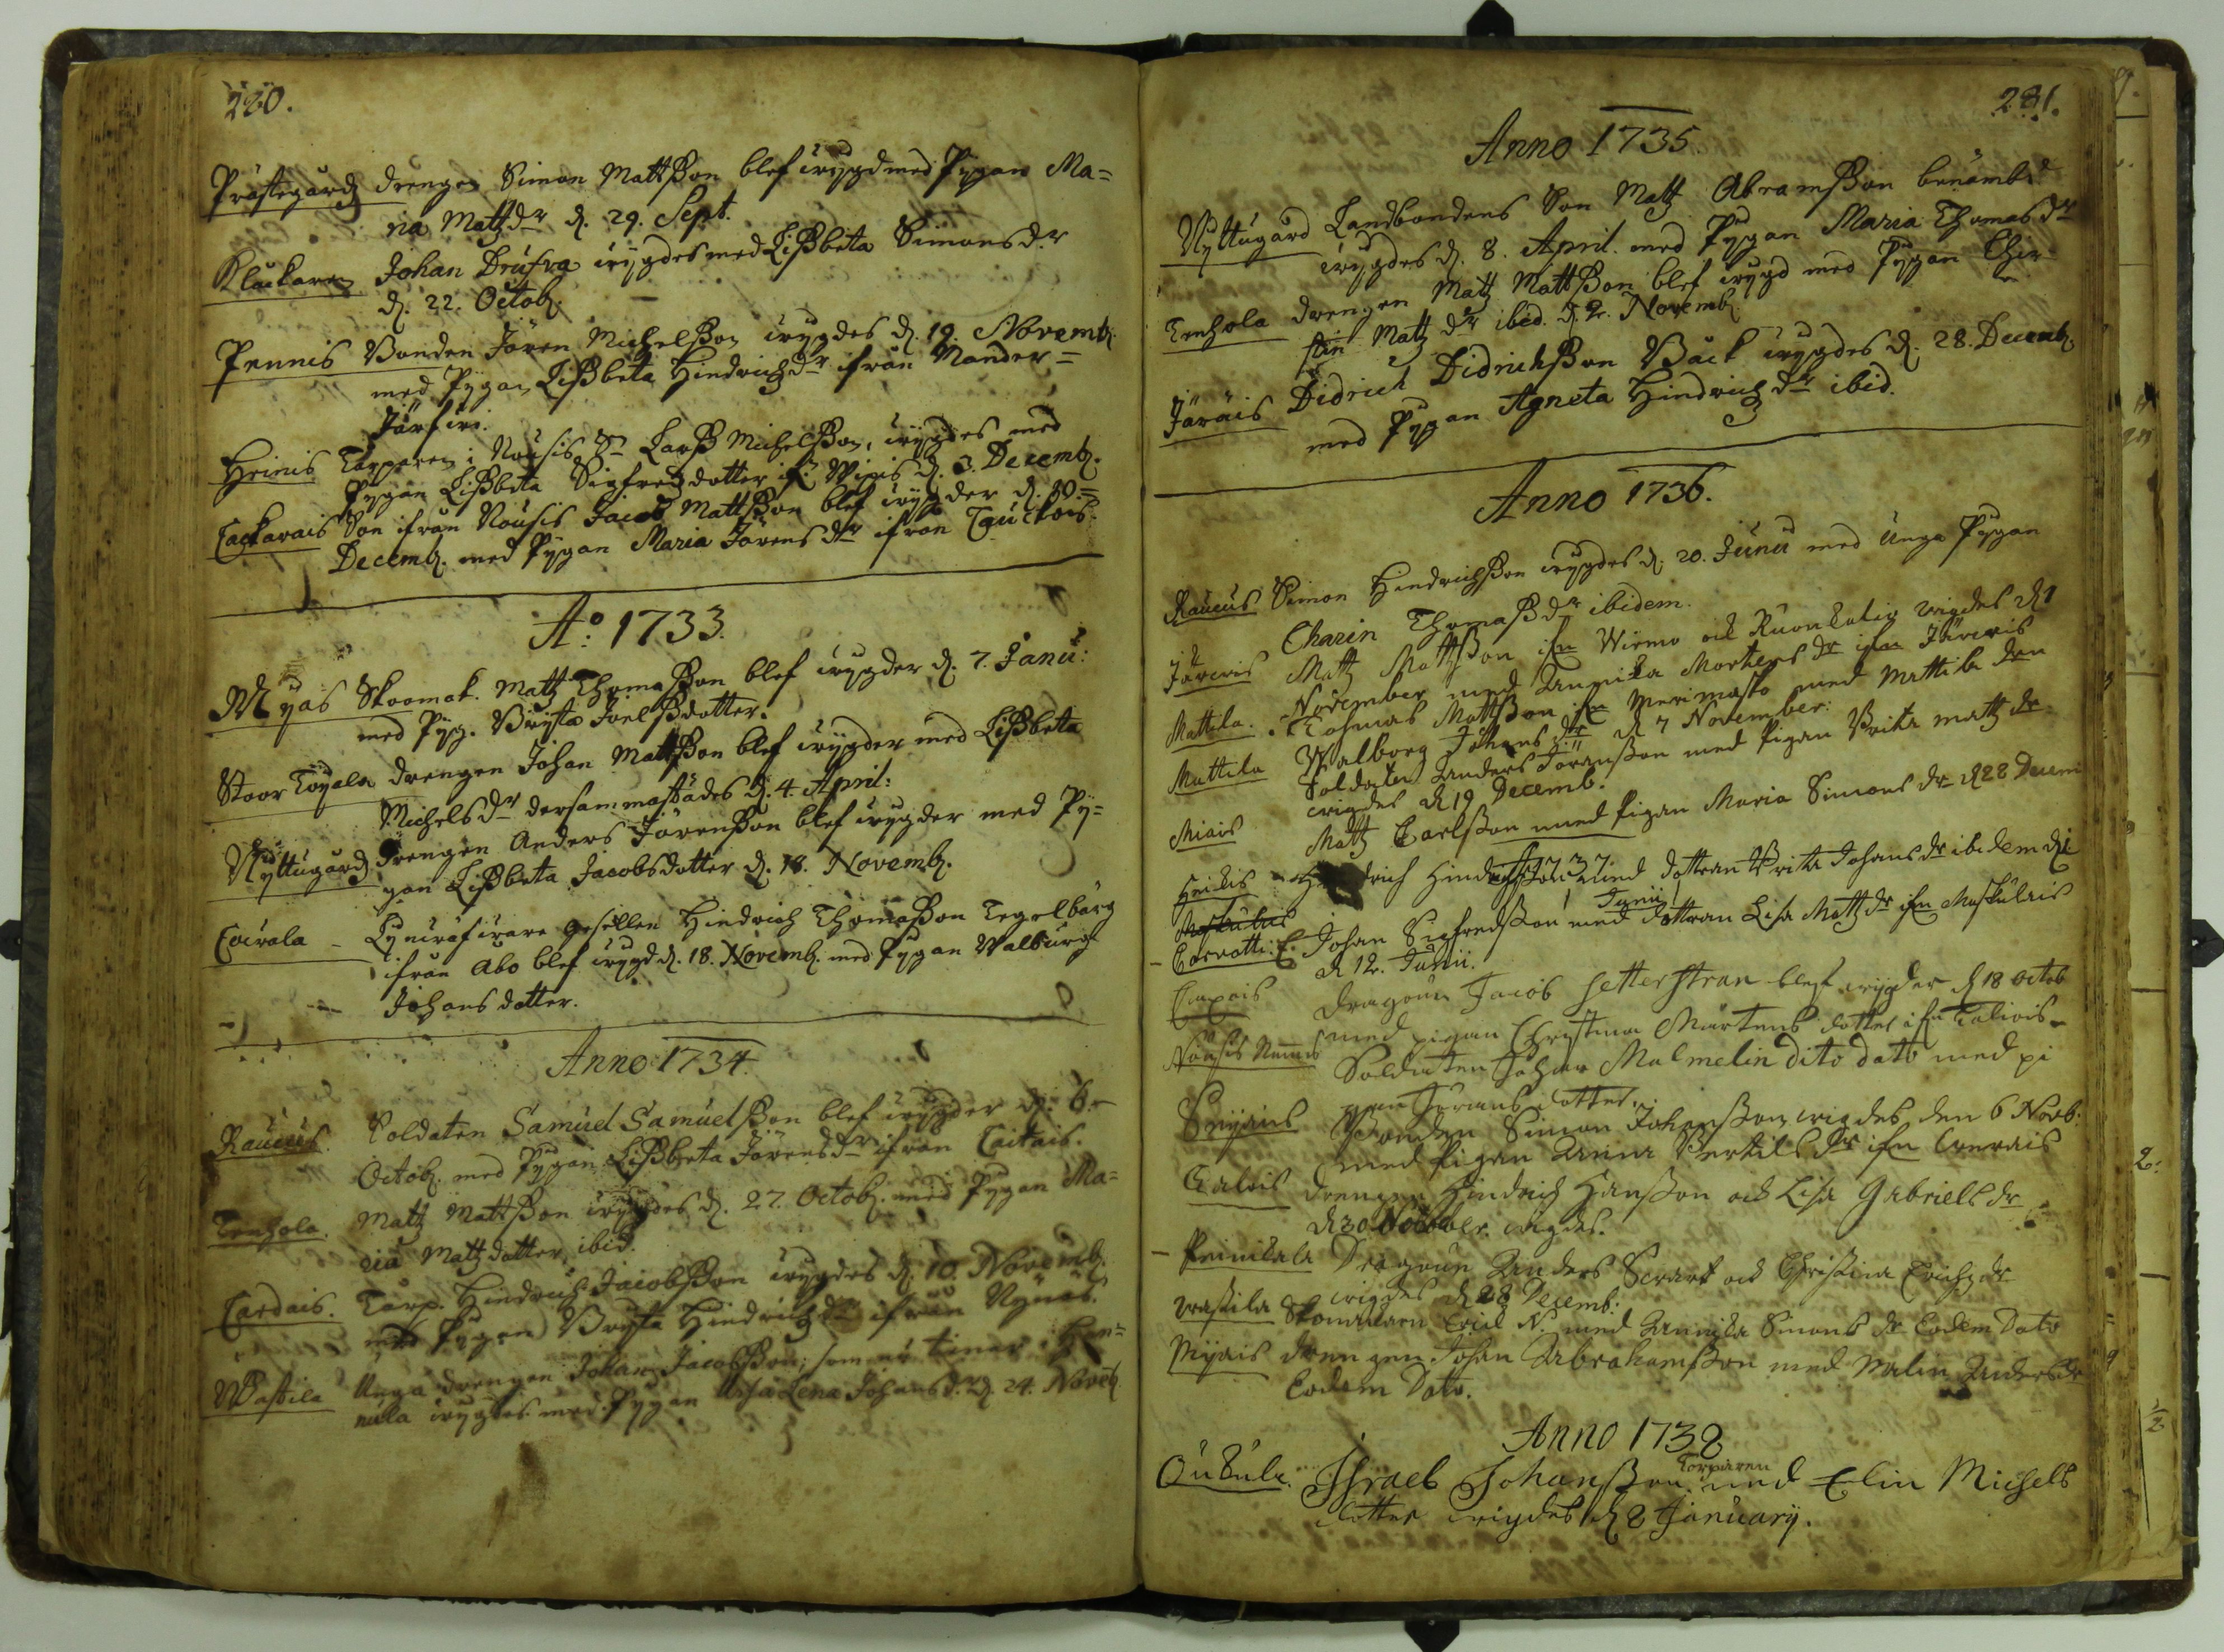 280.
Prästegårdz drengen Simon Mattßon blef wygd med Pygan Ma=
ria Matzdr d. 29. Sept.
Kläckaren Johan Drufva wygdes med Lißbeta Simonsdr
d. 22. Octob.
Pennis Bonden Jören Michelßon wygdes d. 19. Novemb.
med Pygan Lißbeta Hindrichzdr ifrån Mander=
Järfwi.
Heinis Torparen i Nousis Sn Larß Michelßon, wygdes med
Pygan Lißbeta Sigfredzdotter d. 3. Decemb.
Tackarais Son ifrån Nousis Jacob Mattßon blef wygder d. 30.=
Decemb. med Pygan Maria Jörensdr ifrån
Ao: 1733.
Myas Skoomak. Matz Thomaßon blef wygder d. 7. Janu:
med Pyg. Brijta Joelßdotter.
Stoor Töyala drengen Johan Mattßon blef wygder med Lißbeta
Michelsdr dersammastädes d. 4. April:
Nyttugårdz drengen Anders Jörenßon blef wygder med Py=
gan Lißbeta Jacobsdotter d. 18. Novemb.
Gesellen Hindrich Thomaßon Tegelbärg
ifrån Abo blef wygd d. 18. Novemb. med Pygan Walburg
Johansdotter.
Anno 1734.
Raucus. Soldaten Samuel Samuelßon blef wygder d. 6.
Octob. med Pygan Lißbeta Jörensdr ifrån Taitais.
Temhola. Matz Mattßon wygdes d. 27. Octob. med Pygan Ma=
ria Matzdotter ibid.
Tardais. Torp. Hindrich Jacobßon wygdes d. 10. Novemb.
med Pygan Brijta Hindrichzdr ifrån Nynäs.
Waßila Unga drengen Johan Jacobßon, som nu tienar i
nula wygdes med Pygan Lena Johansdr d. 24. Novemb.
281.
Anno 1735.
Nyttugård Landbondens Son Matz Abramßon benämbd
wygdes d. 8. April. med Pygan Maria Thomasdr
Temhola drengen Matz Mattßon blef wygd med Pygan Chir=
stin Matzdr ibid. d. 2. Novemb.
Järäis Didrich Didrichßon Bäck wygdes d. 28. Decemb.
med Pygan Agneta Hindrichzdr ibid.
Anno 1736.
Raucus Simon Hindrichßon wygdes d. 20. Junii med Unga Pygan
Charin Thomaßdr ibidem.
Matz Mattßon ifrn Wirmo och wigdes d 1
November med Annika Mortensdr ifrn
Mattila. Tohmas Mattßon ifn Merimasko med Mattila
Walborg Johansdr d 7 November:
Mattila Soldaten Anders Joranßon med Pigan Brita Matzdr
wigdes d 19 Decemb.
Miais Matz Carlßon med Pigan Maria Simonsdr d 28 Decem
1737
Heikis Hindrich Hindrichßon med dottran Brita Johansdr ibidem d
Junii
Maskulais
Johan Sigfredßon med dottran Lisa Matzdr ifrn Maskulais
d 12. Junii.
Dragoun Jacob Setterstran blef wygder d 18 Octob
med pigan Christina Mårtens dotter ifn
Nousis Soldaten Johan Malmelin dito dato med pi
gan Jörans dotter.
Bonden Simon Johanßon wigdes den 6 Novb:
med Pigan Anna Bertilsdr ifrn
drengen Hindrich Hanßon och Lisa Gabrielsdr
d 30 November wigdes.
Peinikala Dragoun Anders Swart och Christina Erichzdr
wigdes d 28 Decemb:
Waßila Skomakaren Erik N med Annika Simonsdr Eodem Dato
Myais drengen Johan Abrahamßon med Walin Andersdr
Eodem Dato.
Anno 1738
Torparen
Oukula. Israel Johanßon med Elin Michels
dotter wigdes d 8 January.